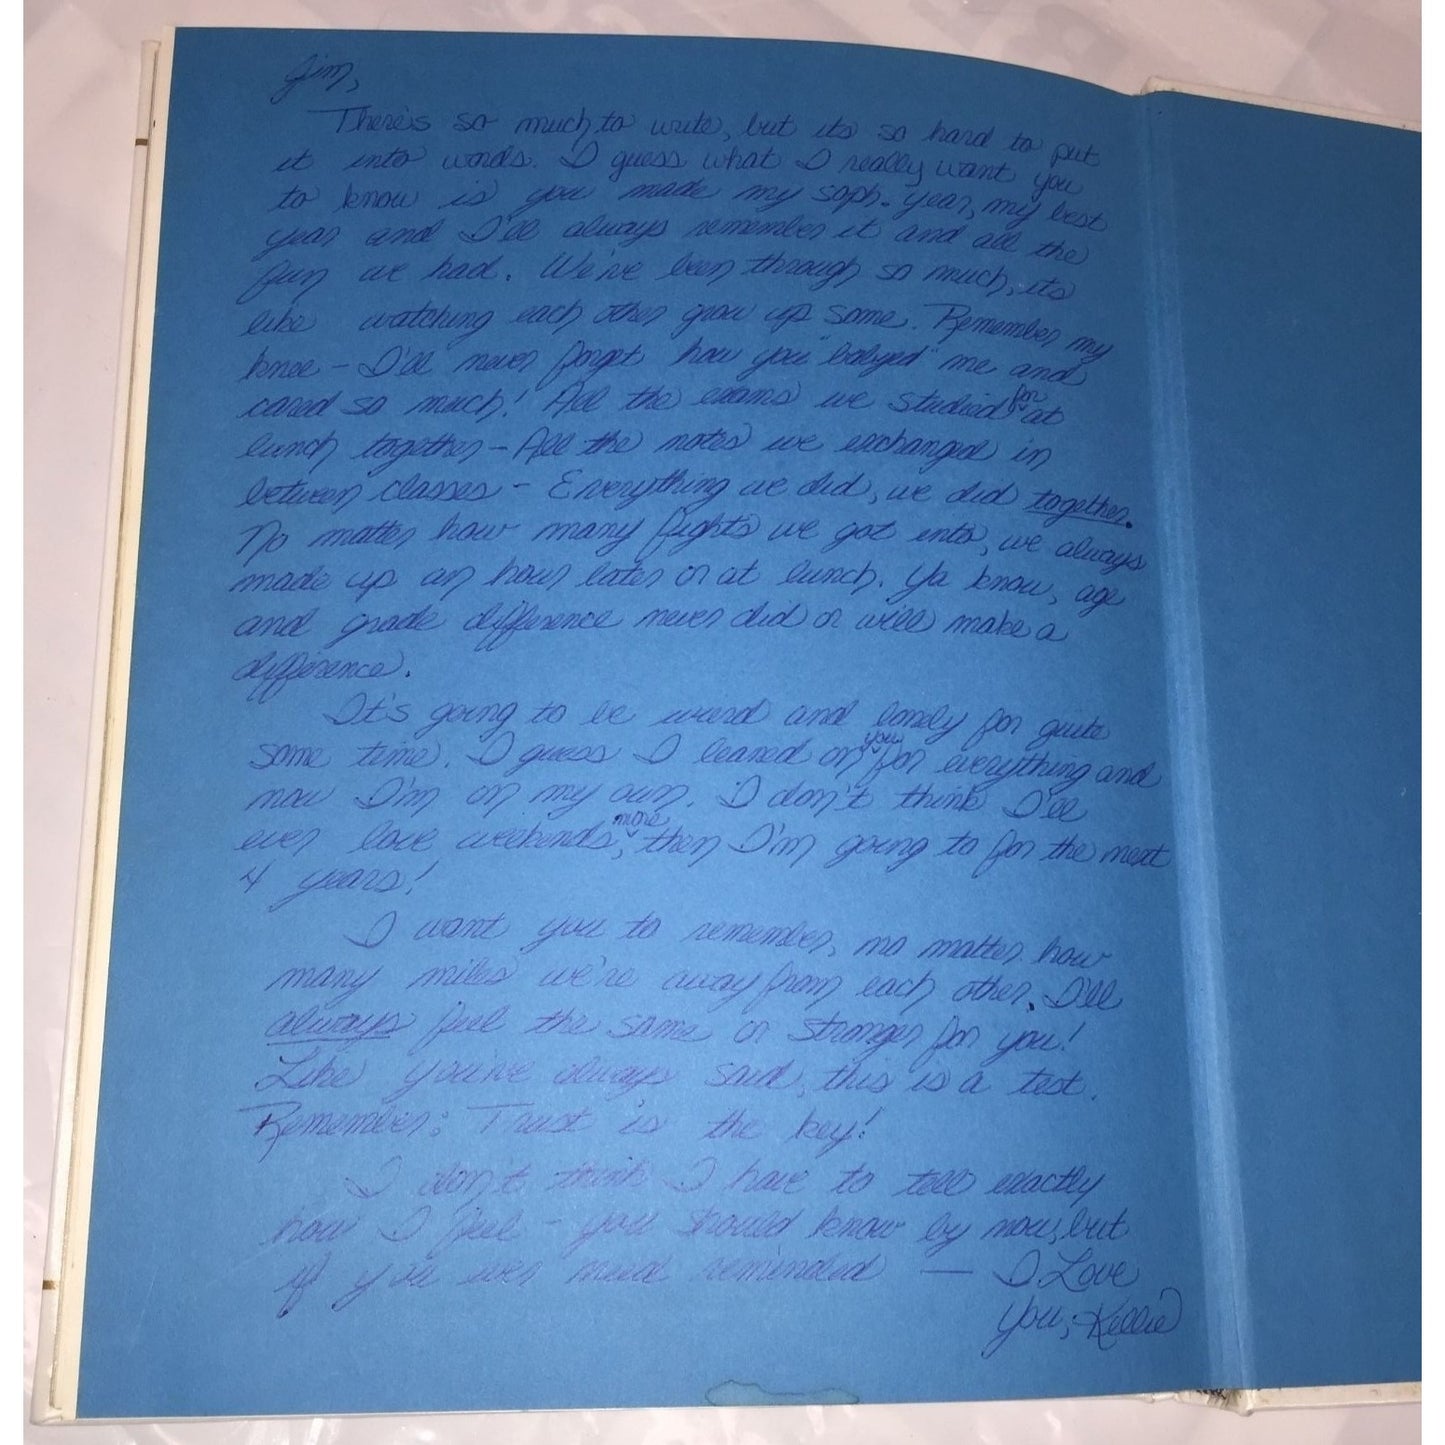 Jim,
There's so much to write, but its so hard to put
it into words. I guess what I really want you
to know is you made my soph. year, my best
year and I'll always remember it and all the
fun we had. We've been through so much, its
like watching each other grow up some. Remember my
knee - I'll never forget how you "babyed" me and
cared so much! All the exams we studied for at
lunch together - All the notes we exchanged in
between classes - Everything we did, we did together.
No matter how many fights we got into, we always
made up an hour later or at lunch. Ya know, age
and grade difference never did or will make a
difference.
It's going to be weird and lonely for quite
some time. I guess I leaned on you for everything and
now I'm on my own. I don't think I'll
ever love weekends, more then I'm going to for the next
4 years!
I want you to remember, no matter how
many miles we're away from each other. I'll
always feel the same or stronger for you!
Like you've always said, this is a test.
Remember: Trust is the key!
I don't think I have to tell exactly
how I feel - you should know by now, but
if you ever need reminded — I Love
you, Kellie